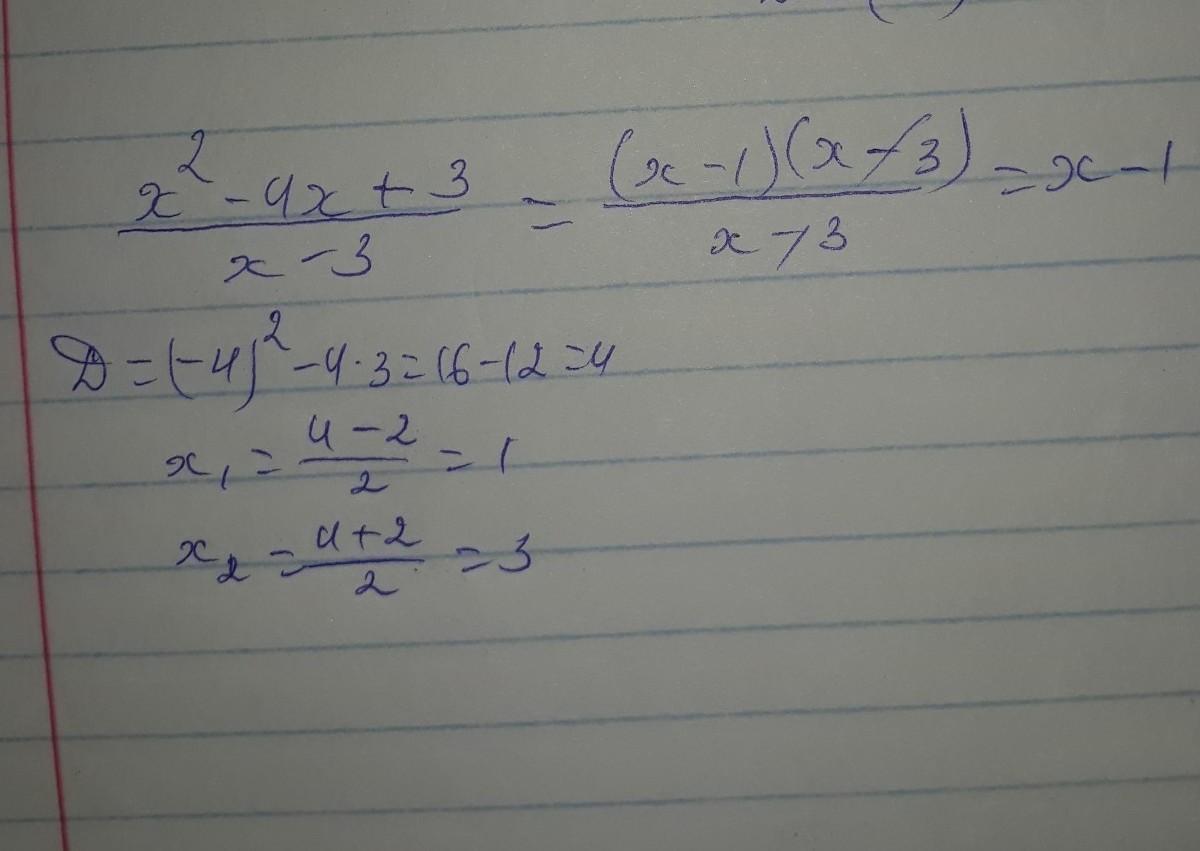 x² - 4x + 3 / x - 3 = (x - 1)(x - 3) / x - 3 = x - 1
D = (-4)² - 4·3 = 16 - 12 = 4
x₁ = 4 - 2 / 2 = 1
x₂ = 4 + 2 / 2 = 3